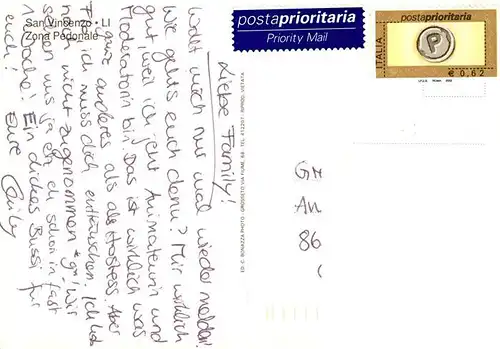 San Vincenzo • LI
Zona Pedonale
Liebe Family!
Wollt mich nur mal wieder melden!
Wie gehts euch denn? Mir wirklich
gut, weil ich jetzt Animateurin und
Moderatorin bin. Das ist wirklich was
ganz anderes als als Hostess. Aber
ich muss dich enttäuschen. Ich hab
nicht zugenommen *g*! Wir
sehen uns ja eh schon in fast
Woche! Ein dickes Bussi für
euch! Eure
ED. C. BONAZZA PHOTO - GROSSETO VIA FIUME, 66 - TEL. 412201 - RIPROD. VIETATA
postaprioritaria
Priority Mail
postaprioritaria
ITALIA
P
€ 0,62
An
86